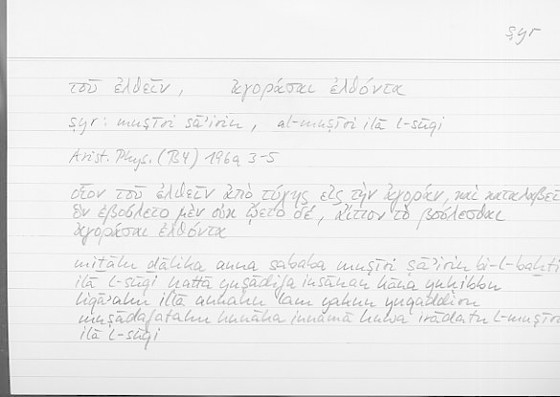 ṣyr
τοῦ ἐλθεῖν, ἀγοράσαι ἐλθόντα
ṣyr: muṣīri ṣāʾirin, al-muṣīri ilā l-sūqi
Arist. Phys. (B4) 196a 3-5
οἷον τοῦ ἐλθεῖν ἀπὸ τύχης εἰς τὴν ἀγοράν, καὶ καταλαβεῖν
ὃν ἐβούλετο μὲν οὐκ ᾤετο δέ, αἴτιον τὸ βούλεσθαι
ἀγοράσαι ἐλθόντα
miṯālu ḏālika anna sababa muṣīri ṣāʾirin bi-l-baḫti
ilā l-sūqi ḥattā yuṣādifa insānan kāna yuḥibbu
liqāʾahu illā annahu lam yakun yuqaddiru
muṣādafatahu hunāka innamā huwa irādatu l-muṣīri
ilā l-sūqi